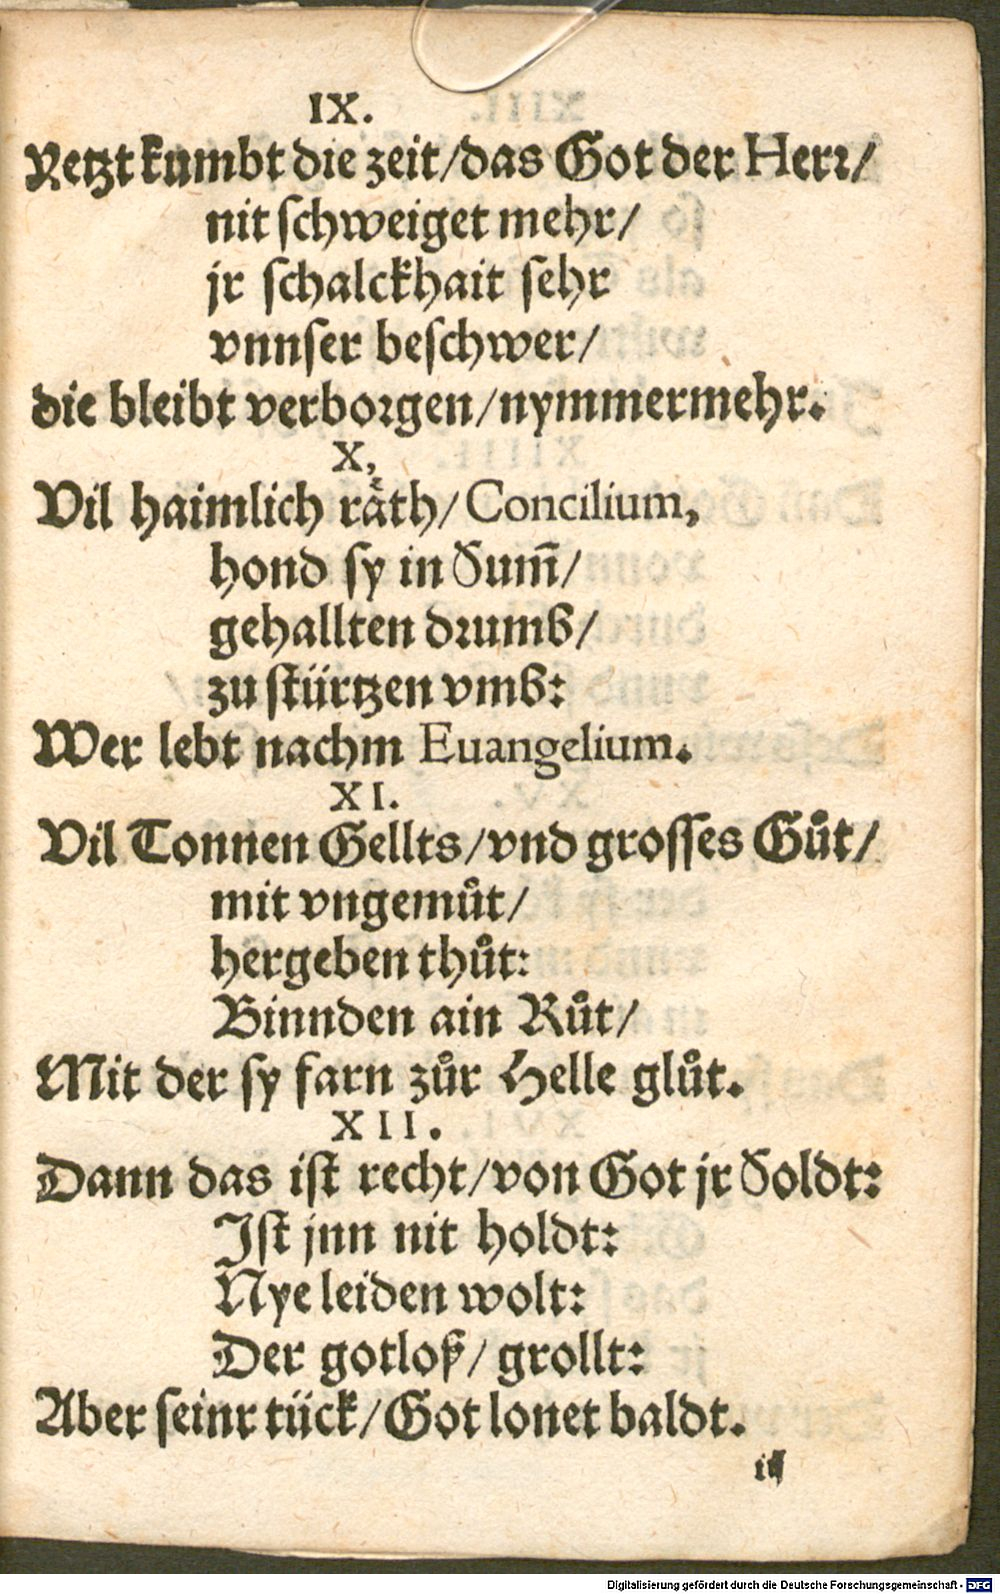 IX.
Yetzt kumbt die zeit/das Got der Herr/
nit schweiget mehr/
jr schalckhait sehr
vnnser beschwer/
die bleibt verborgen/nymmermehr.
X,
Vil haimlich räth/Concilium,
hond sy in Sum̄/
gehallten drumb/
zu stürtzen vmb:
Wer lebt nachm Euangelium.
XI.
Vil Tonnen Gellts/vnd grosses Gůt/
mit vngemůt/
hergeben thůt:
Binnden ain Růt/
Mit der sy farn zůr Helle glůt.
XII.
Dann das ist recht/von Got jr Soldt:
Ist jnn nit holdt:
Nye leiden wolt:
Der gotloß/ grollt:
Aber seinr tück/Got lonet baldt.
Digitalisierung gefördert durch die Deutsche Forschungsgemeinschaft - DFG